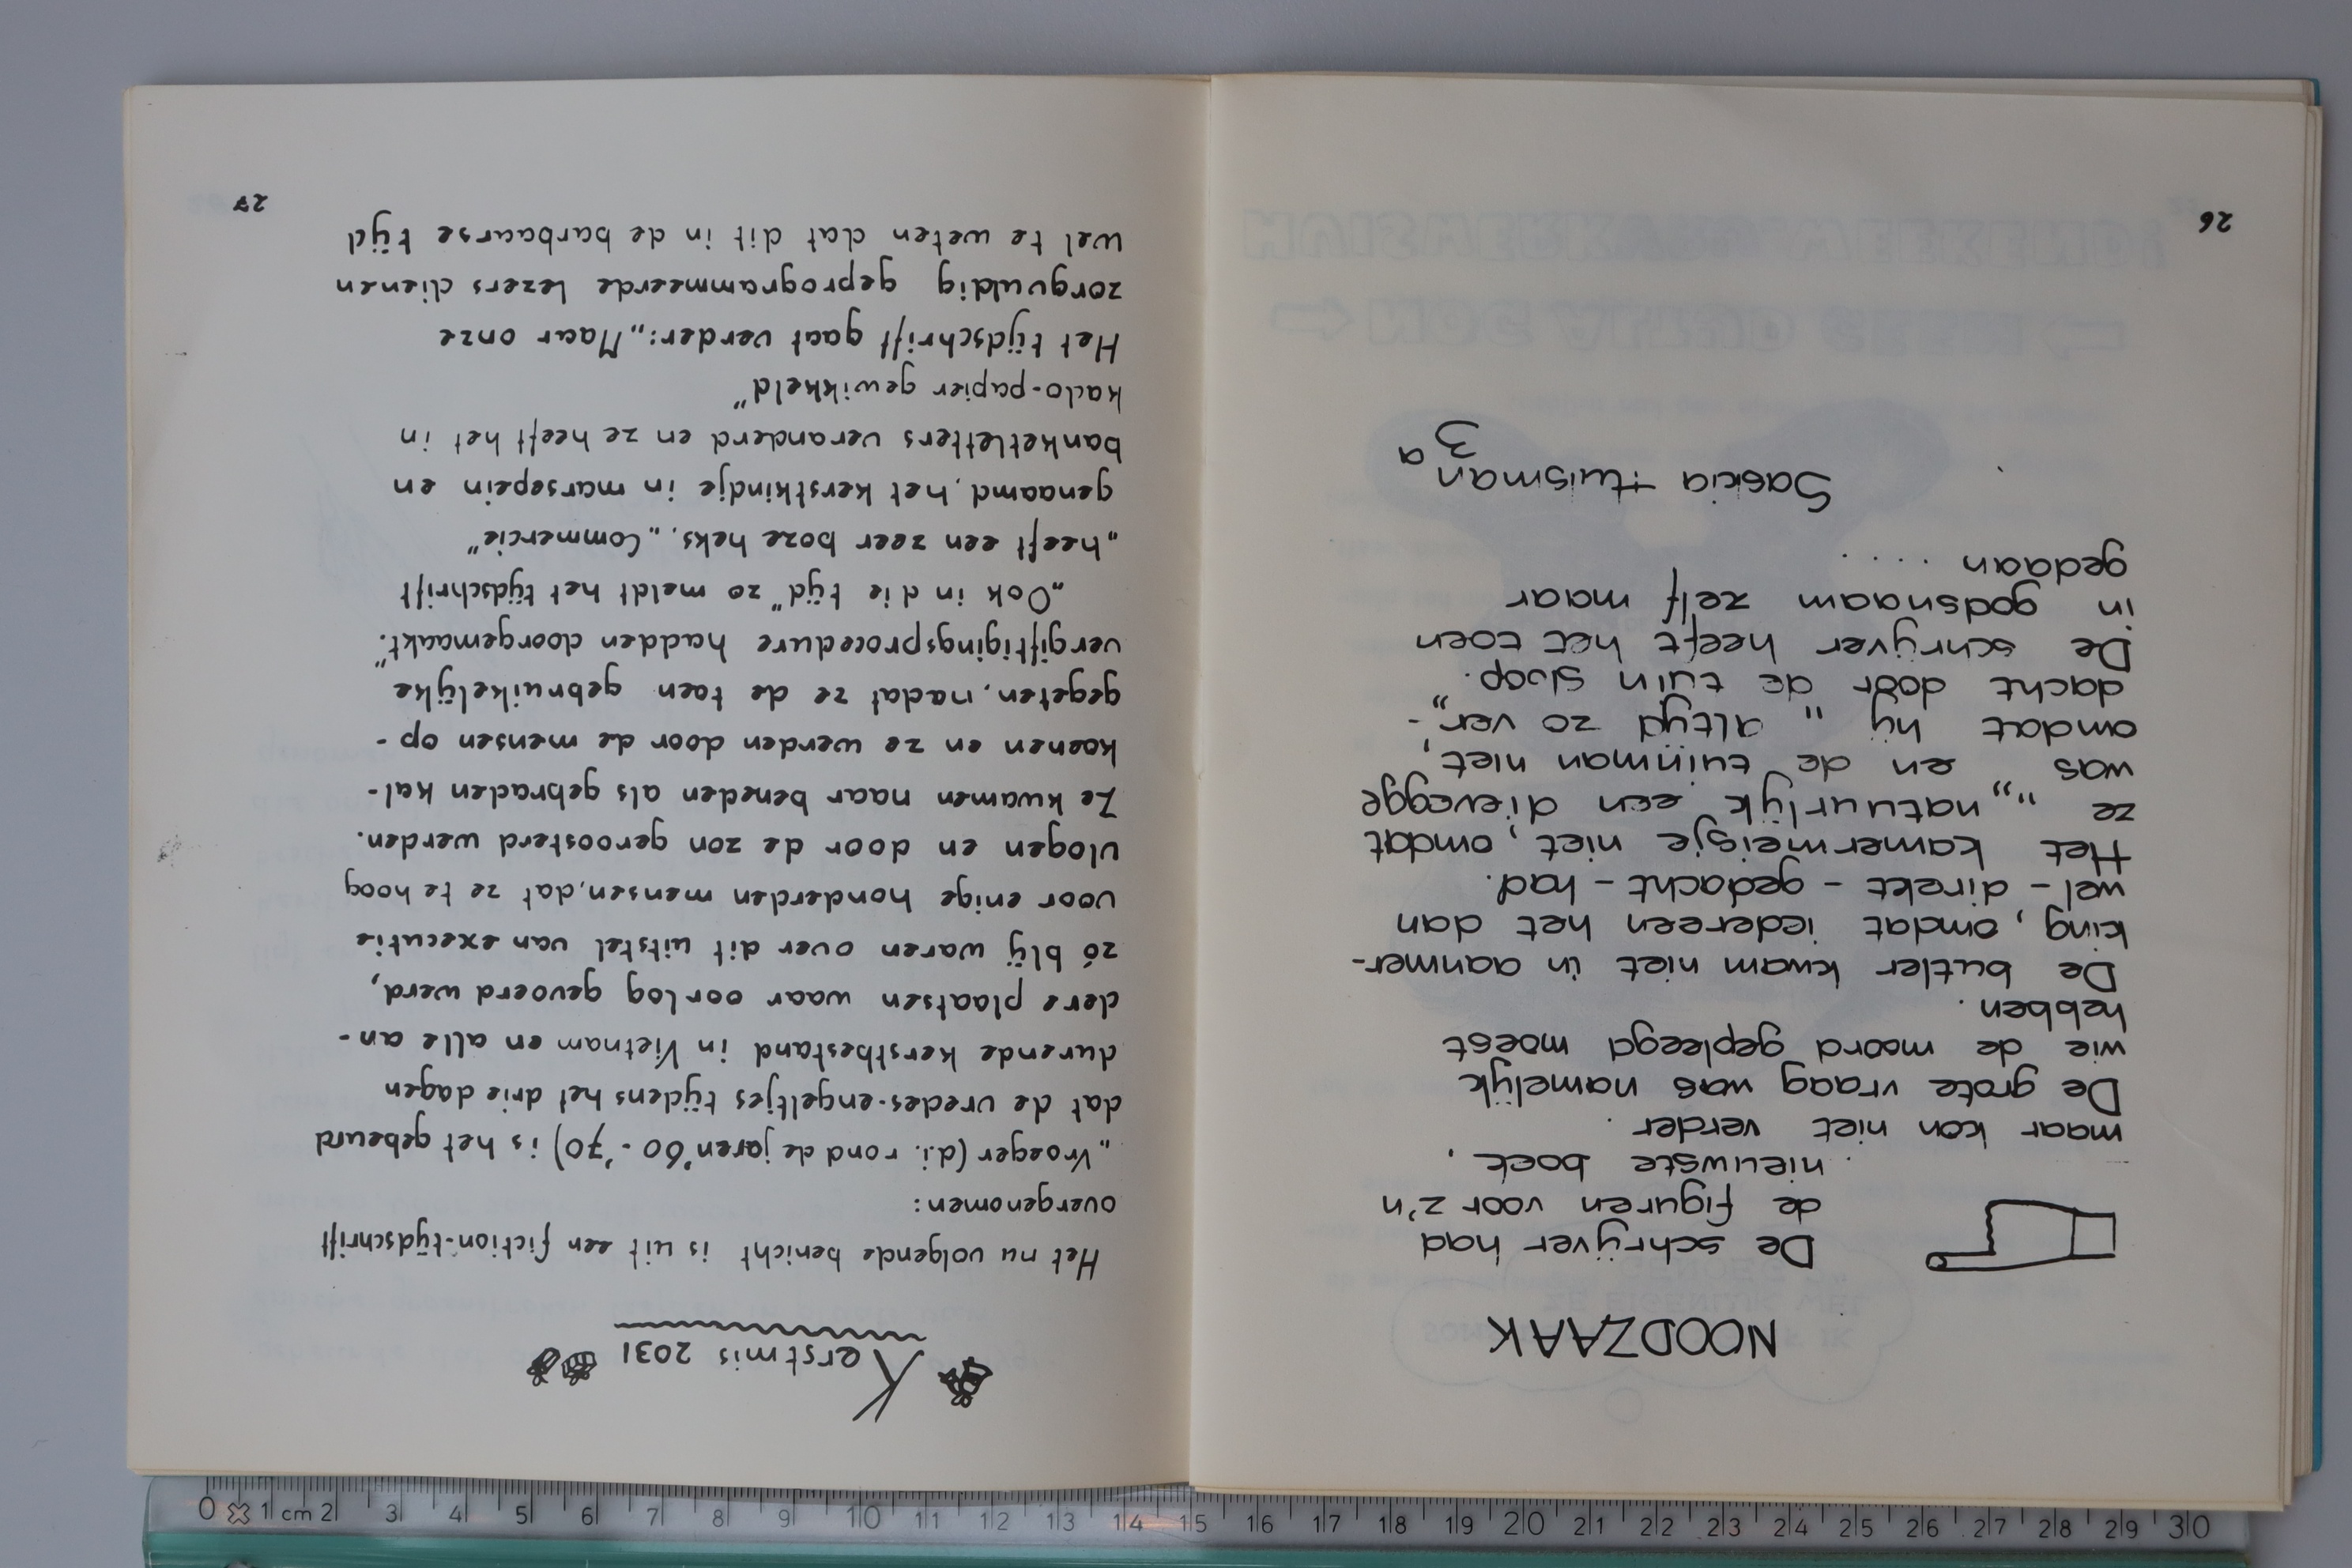 NOODZAAK
De schrijver had
de figuren voor z'n
nieuwste boek,
maar kon niet verder.
De grote vraag was namelijk
wie de moord gepleegd moest
hebben.
De butler kwam niet in aanmer-
king, omdat iedereen het dan
wel - direkt - gedacht - had.
Het kamermeisje niet, omdat
ze "„natuurlijk een dievegge
was en de tuinman niet,
omdat hij " altijd zo ver„-
dacht door de tuin sloop.
De schrijver heeft het toen
in godsnaam zelf maar
gedaan ....
Saskia Huisman
3a
26
Kerstmis 2031
Het nu volgende bericht is uit een fiction-tijdschrift
overgenomen:
„Vroeger (d.i. rond de jaren '60 - '70) is het gebeurd
dat de vredes-engeltjes tijdens het drie dagen
durende kerstbestand in Vietnam en alle an-
dere plaatsen waar oorlog gevoerd werd,
zó blij waren over dit uitstel van executie
voor enige honderden mensen, dat ze te hoog
vlogen en door de zon geroosterd werden.
Ze kwamen naar beneden als gebraden kal-
koenen en ze werden door de mensen op-
gegeten, nadat ze de toen gebruikelijke
vergiftigingsprocedure hadden doorgemaakt."
„Ook in die tijd" zo meldt het tijdschrift
„heeft een zeer boze heks, „Commercie"
genaamd, het kerstkindje in marsepein en
banketletters veranderd en ze heeft het in
kado-papier gewikkeld"
Het tijdschrift gaat verder: „Maar onze
zorgvuldig geprogrammeerde lezers dienen
wel te weten dat dit in de barbaarse tijd
27
0 1 cm 2 3 4 5 6 7 8 9 10 11 12 13 14 15 16 17 18 19 20 21 22 23 24 25 26 27 28 29 30